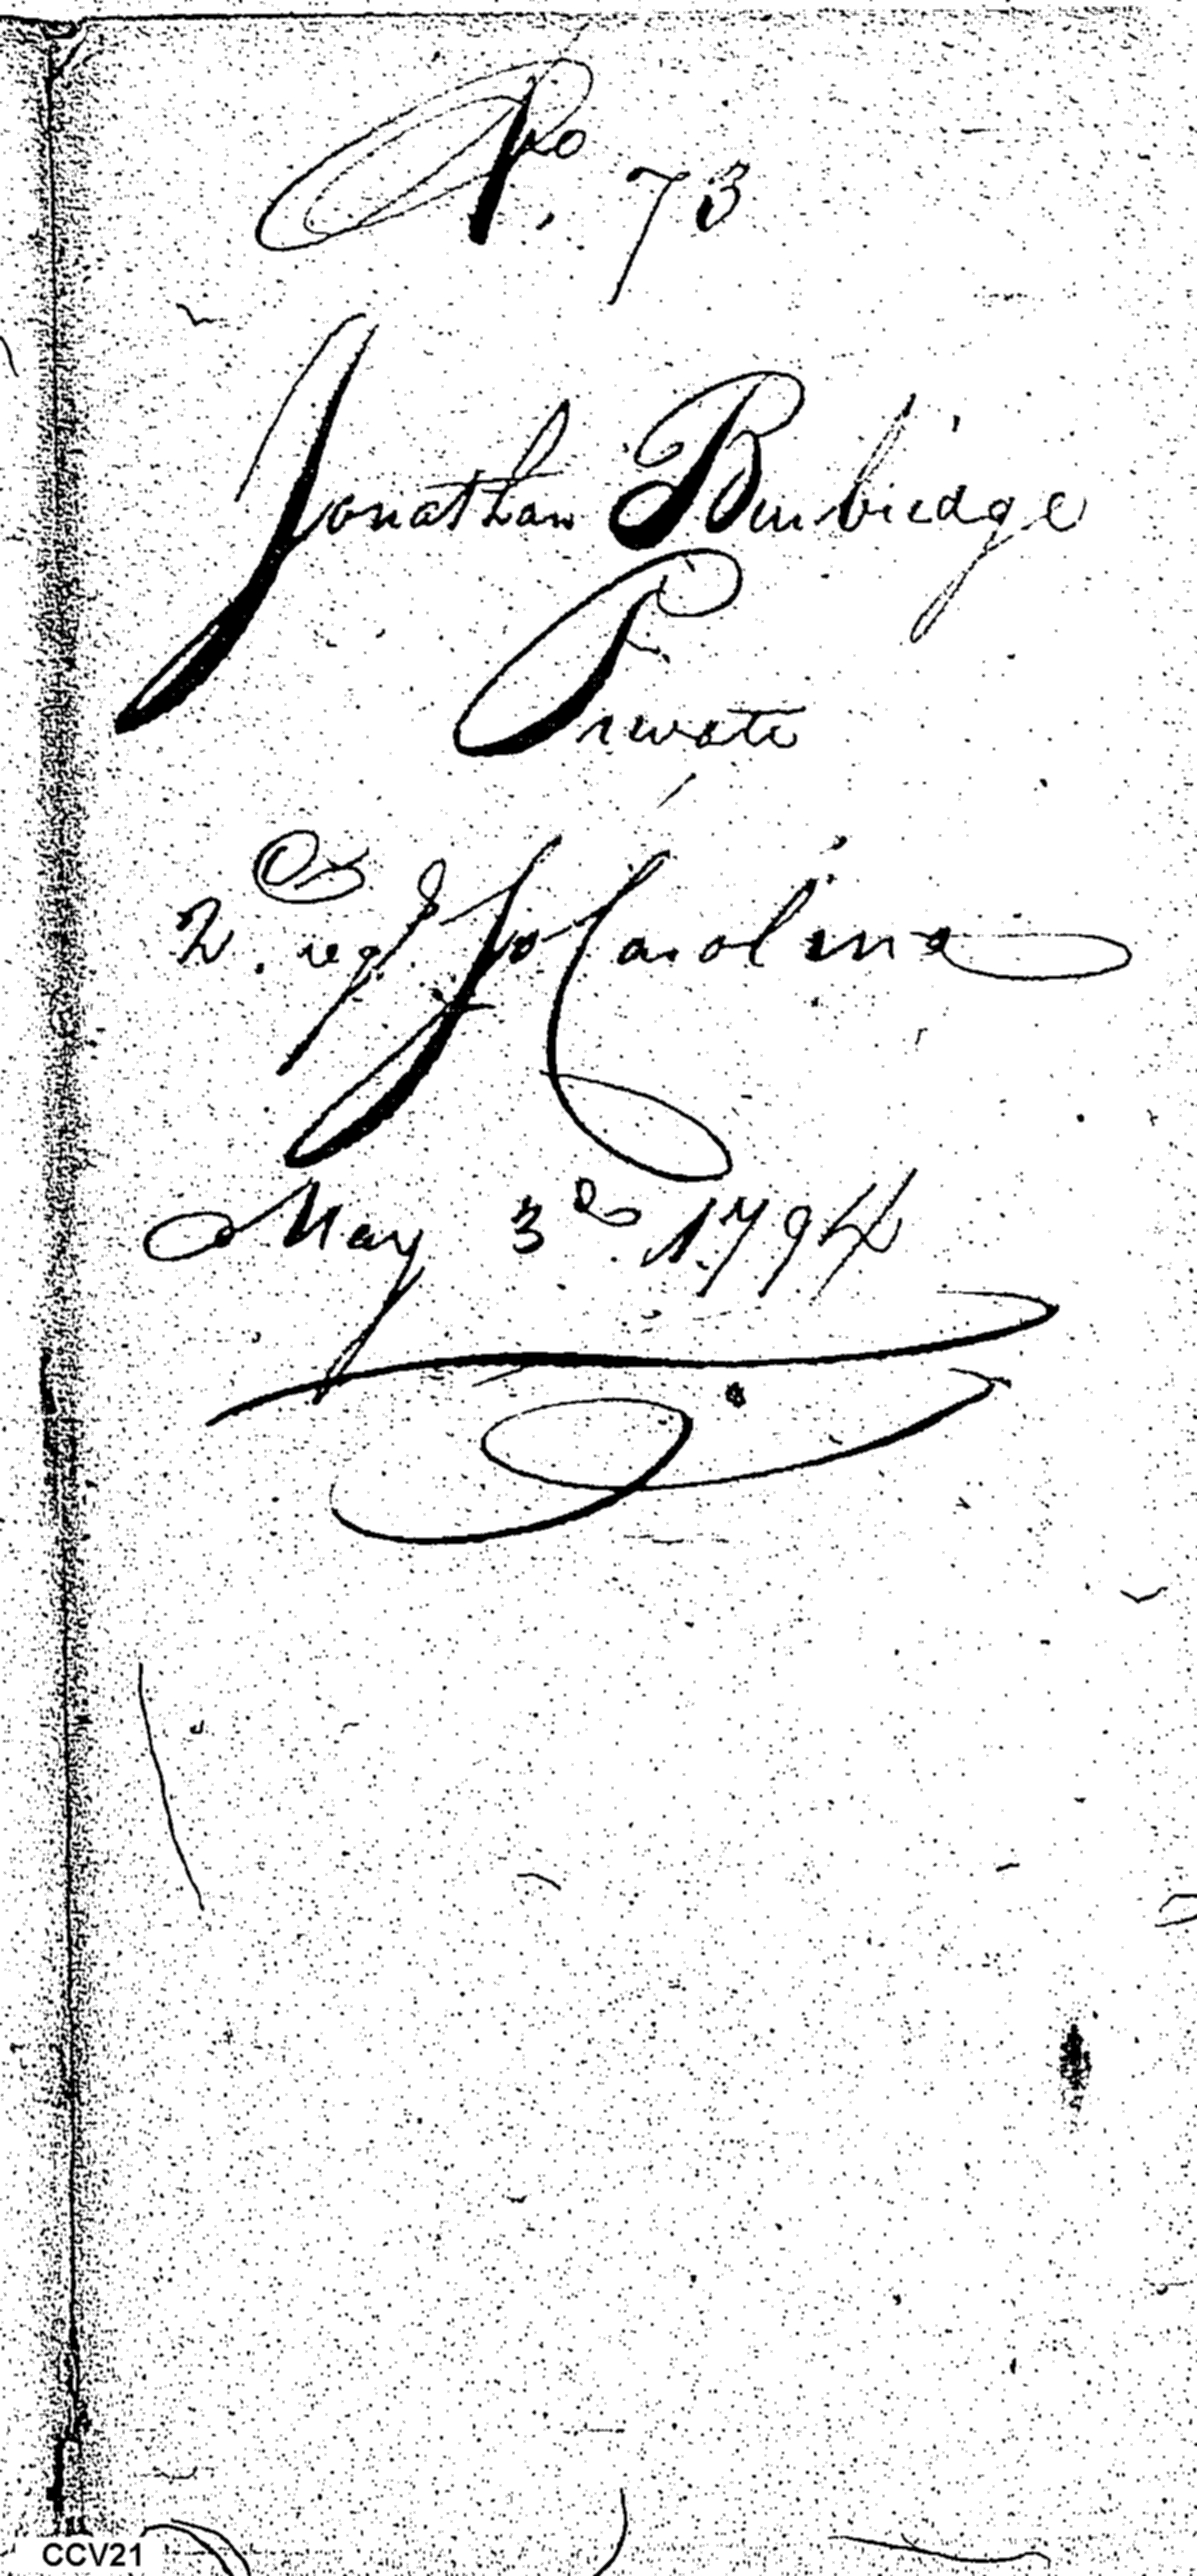 No. 73
Jonathan Burbridge
Private
2d. regt So Carolina
May 3d 1794
CCV21